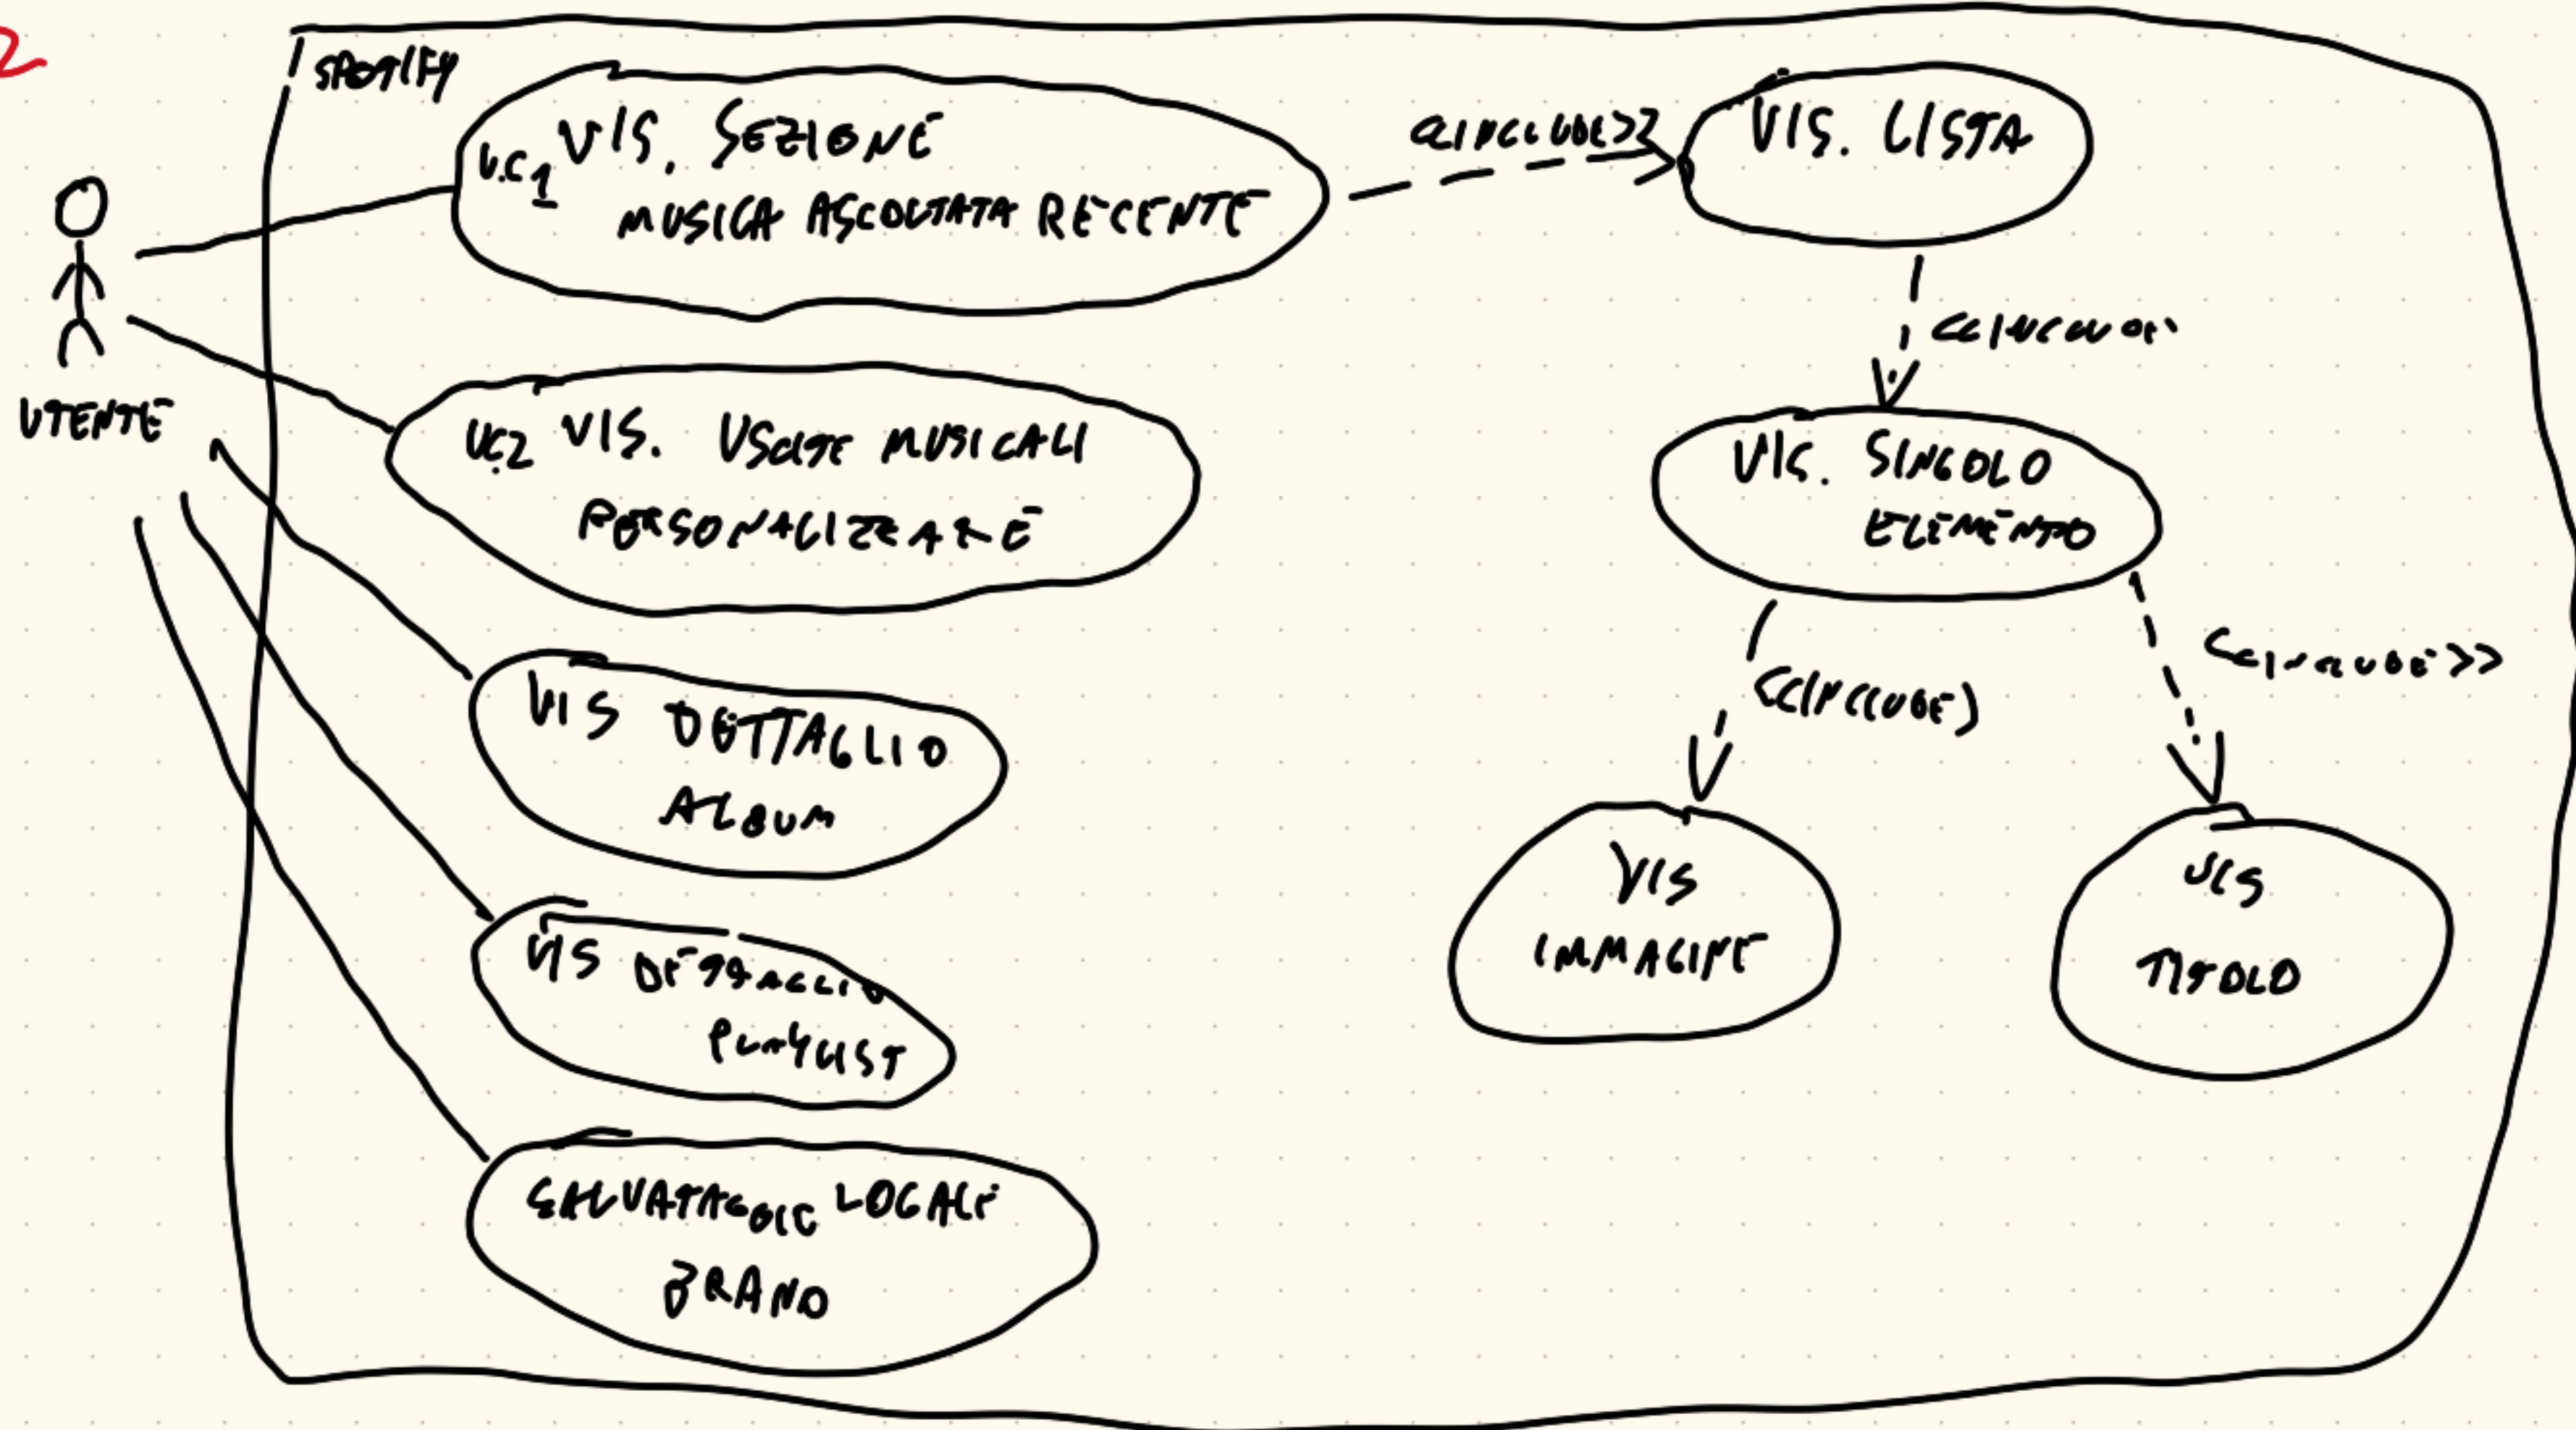 2
SPOTIFY
UTENTE
UC1 VIS. SEZIONE
MUSICA ASCOLTATA RECENTE
<<INCLUDE>>
VIS. LISTA
<<INCLUDE>
UC2 VIS. USCITE MUSICALI
PERSONALIZZARE
VIS. SINGOLO
ELEMENTO
<<INCLUDE>
<<INCLUDE>>
VIS DETTAGLIO
ALBUM
VIS
IMMAGINE
VIS
TITOLO
VIS DETTAGLIO
PLAYLIST
SALVATAGGIO LOCALE
BRANO